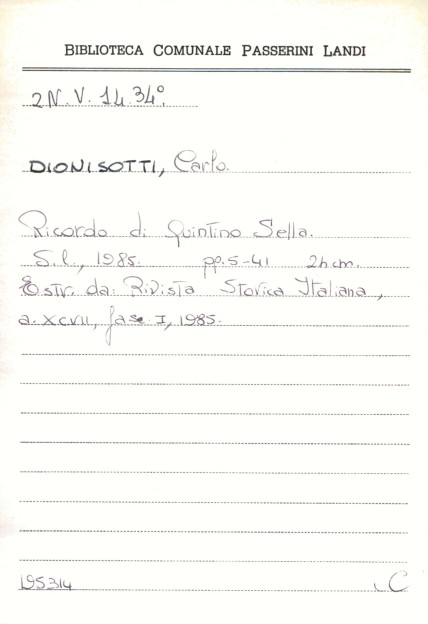 BIBLIOTECA COMUNALE PASSERINI LANDI
2N.V.14.34°.
DIONISOTTI, Carlo.
Ricordo di Quintino Sella.
S.l., 1985. pp. 5-41 24 cm.
Estr. da: Rivista Storica Italiana,
a. XCVII, fasc. I, 1985.
195314 C